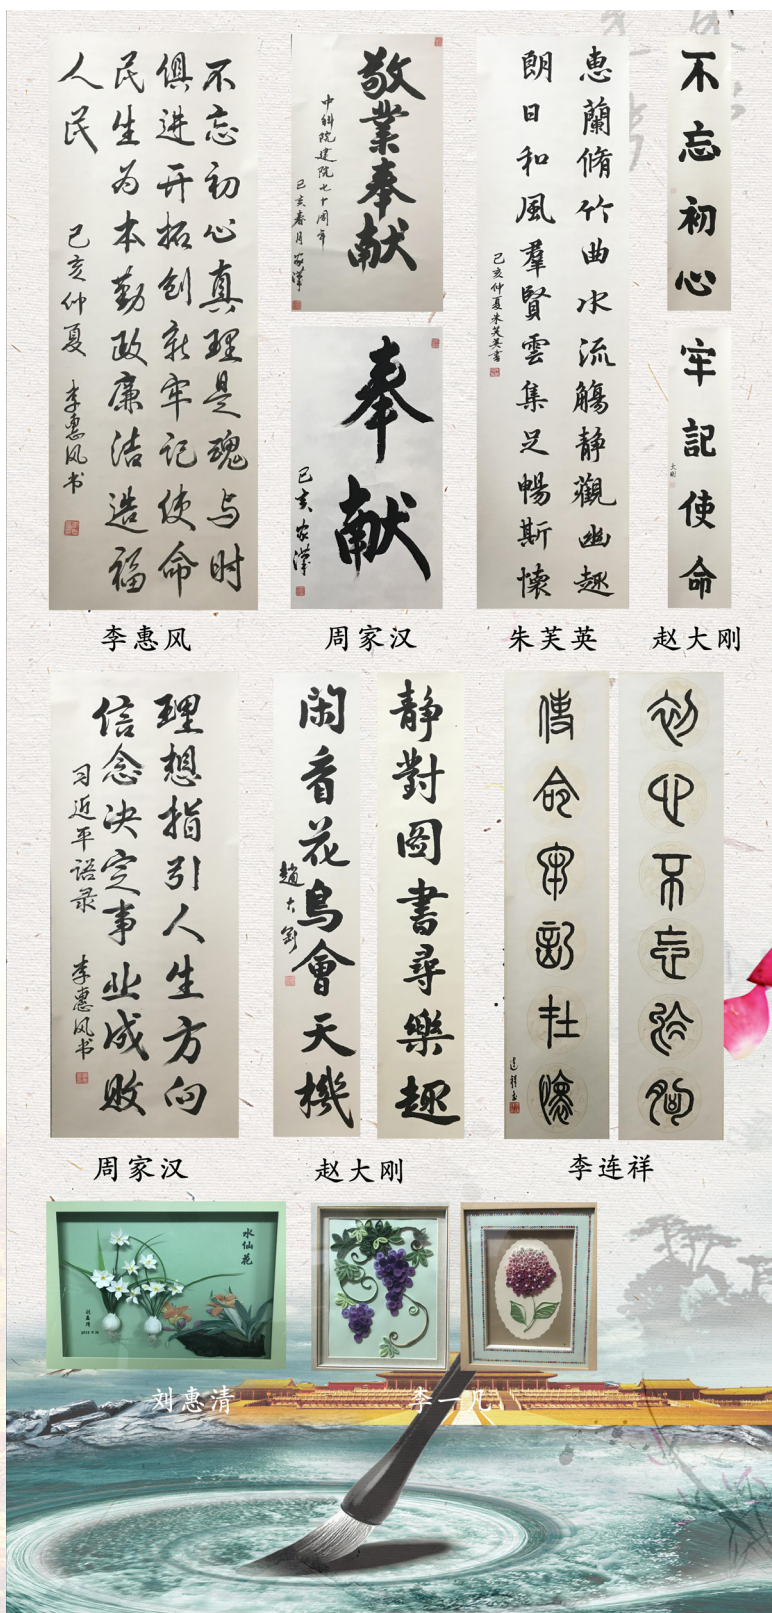 不忘初心真理是魂与时
俱进开拓创新牢记使命
民生为本勤政廉洁造福
人民
己亥仲夏 李惠风书
敬業奉献
中科院建院七十周年
己亥春月 家漢
奉献
己亥 家漢
惠蘭脩竹曲水流觴静觀幽趣
朗日和風羣賢雲集足暢斯懷
己亥仲夏朱芙英書
不忘初心
牢記使命
大刚
李惠风
周家汉
朱芙英
赵大刚
理想指引人生方向
信念决定事业成败
习近平语录
李惠风书
静對图書尋樂趣
閑看花鳥會天機
趙大剛
初心不忘於胸
使命牢記在懷
周家汉
赵大刚
李连祥
水仙花
刘惠清
李一凡